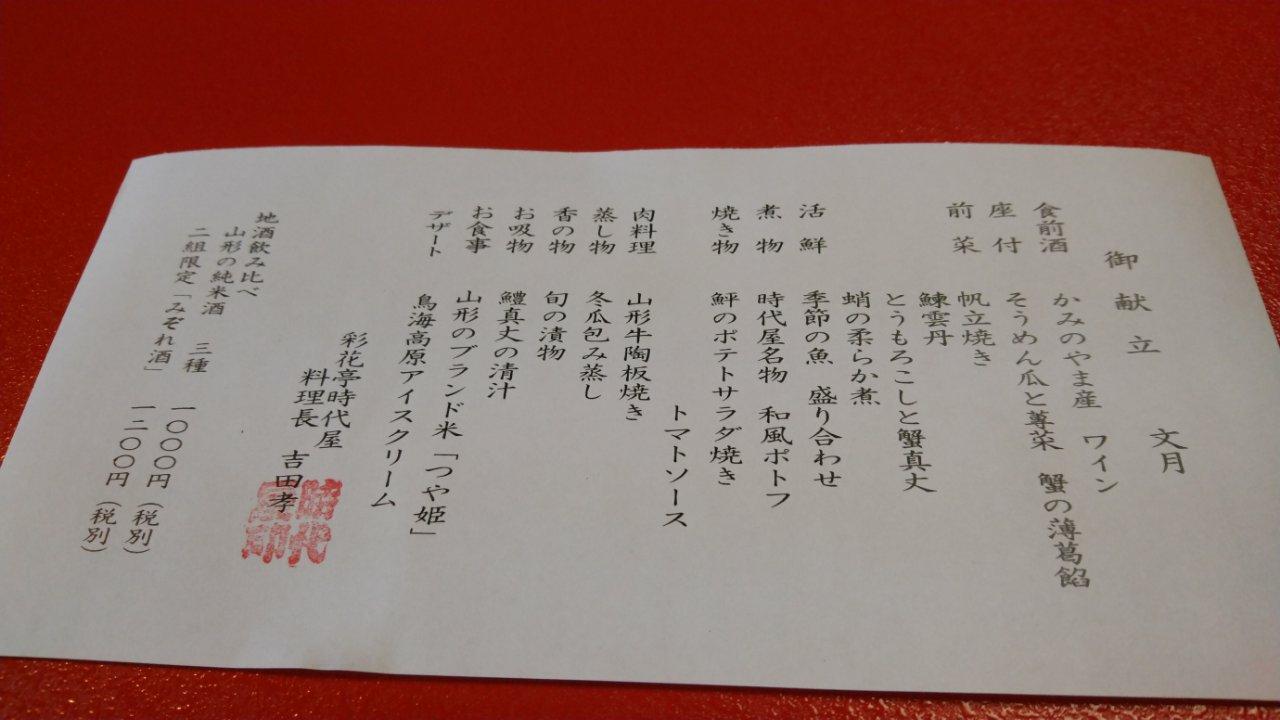 御献立　文月
食前酒　かみのやま産　ワイン
座付　そうめん瓜と蓴菜　蟹の薄葛餡
前菜　帆立焼き
鰊雲丹
とうもろこしと蟹真丈
蛸の柔らか煮
活鮮　季節の魚　盛り合わせ
煮物　時代屋名物　和風ポトフ
焼き物　鮃のポテトサラダ焼き
トマトソース
肉料理　山形牛陶板焼き
蒸し物　冬瓜包み蒸し
香の物　旬の漬物
お吸物　鱧真丈の清汁
お食事　山形のブランド米「つや姫」
デザート　鳥海高原アイスクリーム
彩花亭時代屋
料理長　吉田孝
時代屋印
地酒飲み比べ
山形の純米酒　三種　一〇〇〇円（税別）
二組限定「みぞれ酒」　一二〇〇円（税別）